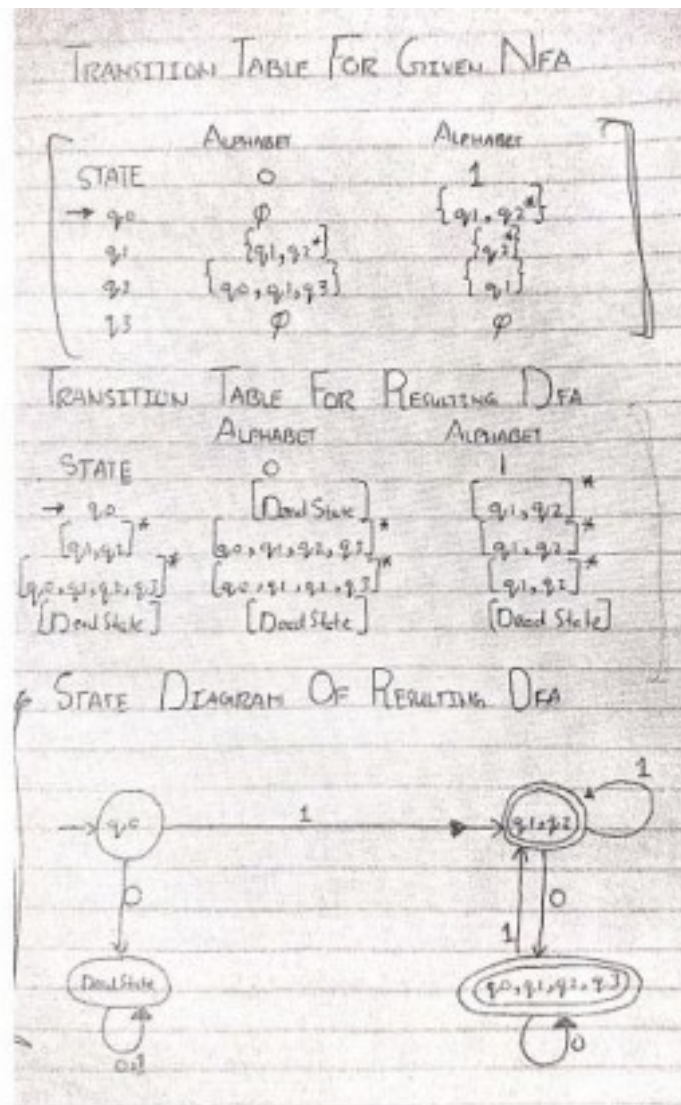 TRANSITION TABLE FOR GIVEN NFA
ALPHABET ALPHABET
STATE 0 1
→ q0 φ {q1, q2*}
q1 {q1, q2*} {q2*}
q2 {q0, q1, q3} {q1}
q3 φ φ
TRANSITION TABLE FOR RESULTING DFA
ALPHABET ALPHABET
STATE 0 1
→ q0 [Dead State] [q1, q2]*
[q1, q2]* [q0, q1, q2, q3]* [q1, q2]*
[q0, q1, q2, q3]* [q0, q1, q2, q3]* [q1, q2]*
[Dead State] [Dead State] [Dead State]
STATE DIAGRAM OF RESULTING DFA
q0 1 q1, q2 1
0 1 0
Dead State q0, q1, q2, q3
0,1 0